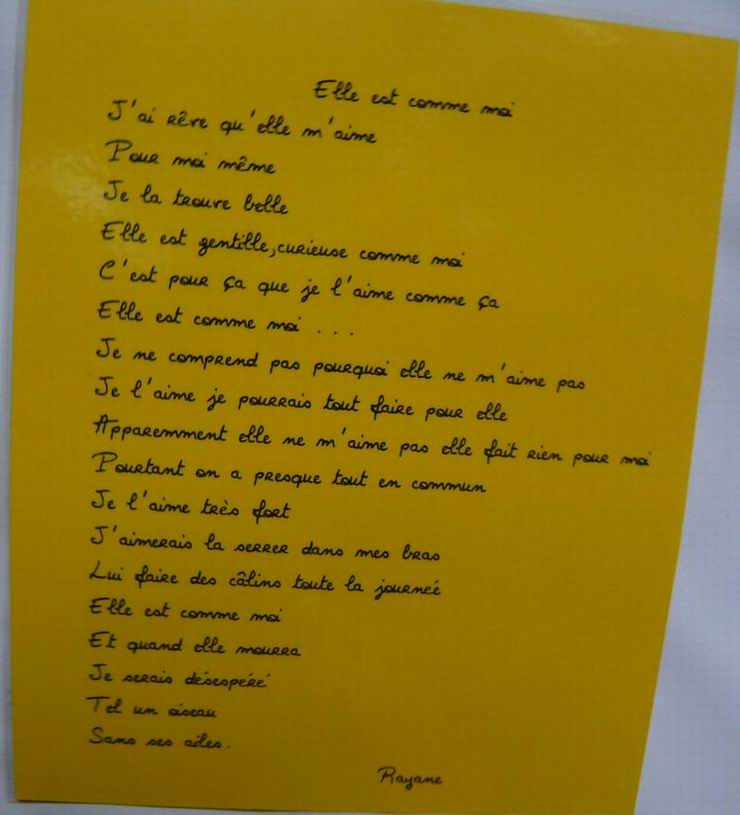 Elle est comme moi
J'ai rêve qu'elle m'aime
Pour moi même
Je la trouve belle
Elle est gentille,curieuse comme moi
C'est pour ça que je l'aime comme ça
Elle est comme moi ...
Je ne comprend pas pourquoi elle ne m'aime pas
Je l'aime je pourrais tout faire pour elle
Apparemment elle ne m'aime pas elle fait rien pour moi
Pourtant on a presque tout en commun
Je l'aime très fort
J'aimerais la serrer dans mes bras
Lui faire des câlins toute la journeé
Elle est comme moi
Et quand elle mourra
Je serais désespéré
Tel un oiseau
Sans ses ailes.
Rayane